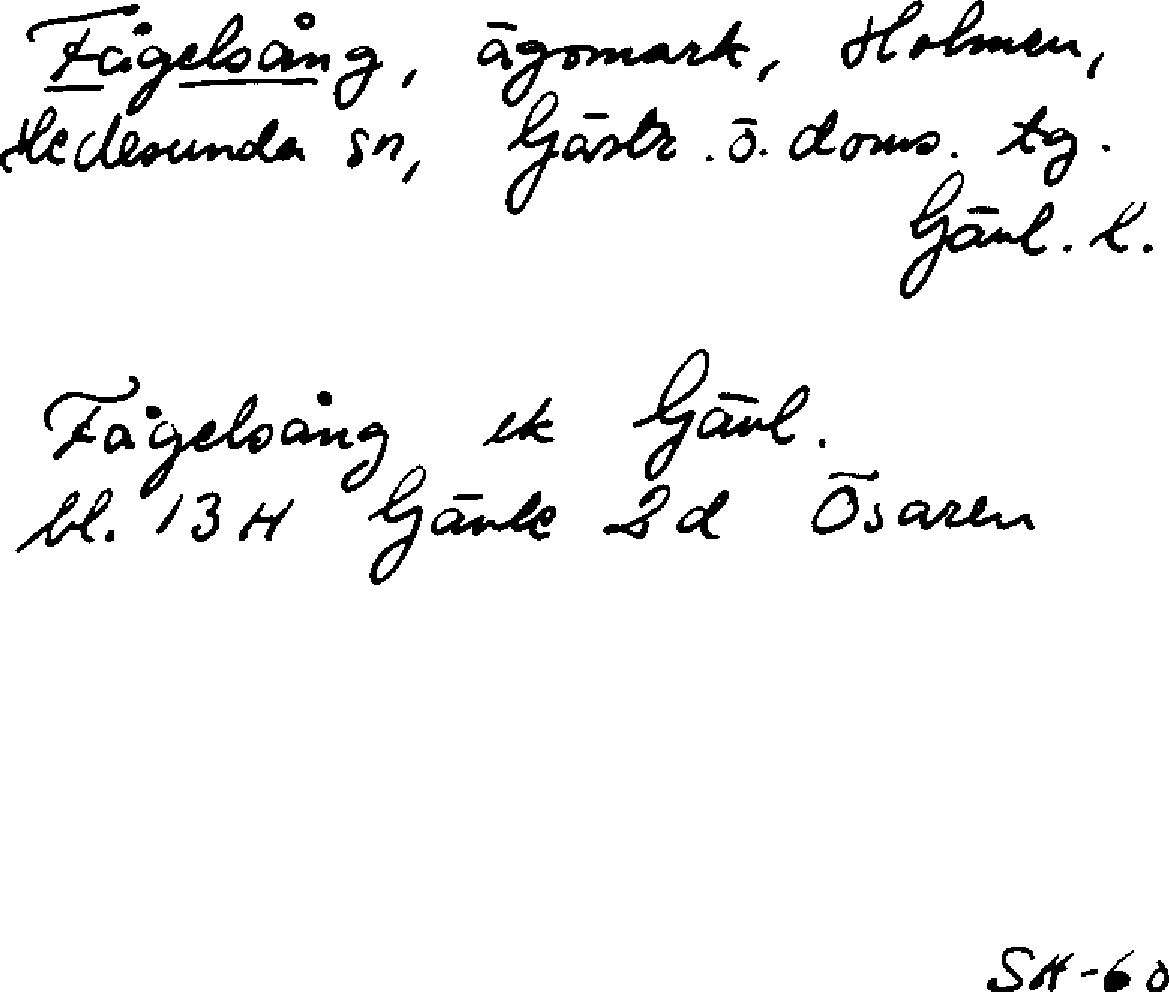 Fågelsång, ägomark, Holmen,
Hedesunda sn, Gästr. ö. doms. tg.
Gävl. l.
Fågelsång ek Gävl.
bl. 13H Gävle 2d Ösaren
SH-60